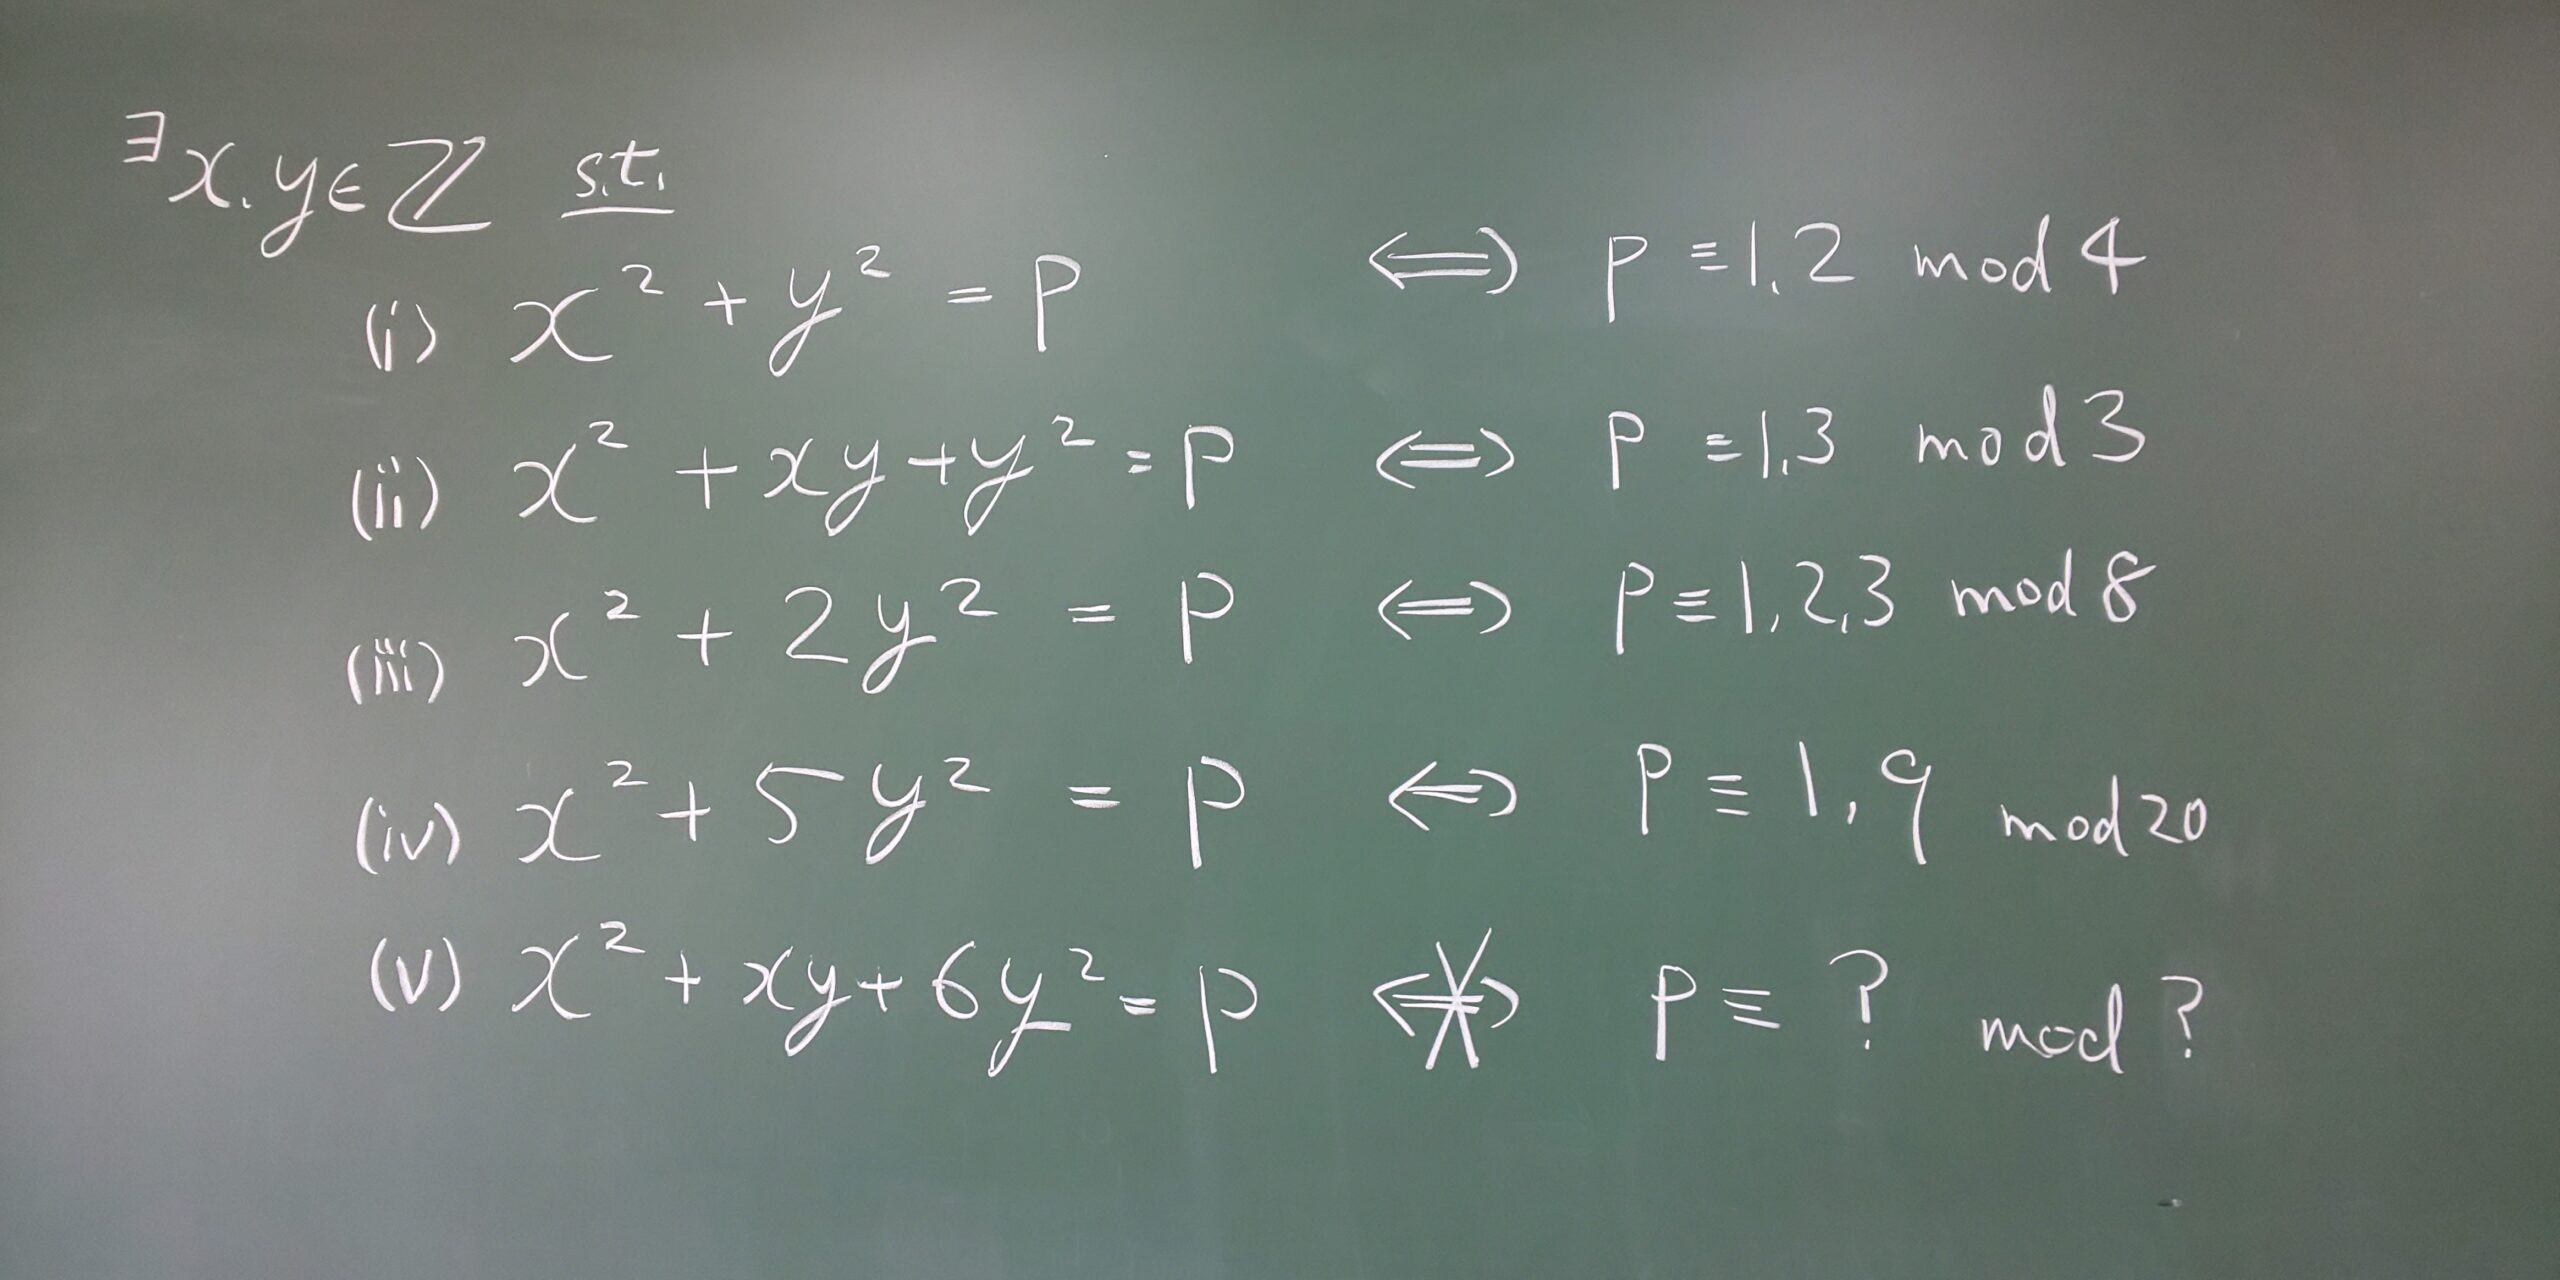 ∃x, y ∈ ℤ s.t.
(i) x² + y² = p ⟺ p ≡ 1, 2 mod 4
(ii) x² + xy + y² = p ⟺ p ≡ 1, 3 mod 3
(iii) x² + 2y² = p ⟺ p ≡ 1, 2, 3 mod 8
(iv) x² + 5y² = p ⟺ p ≡ 1, 9 mod 20
(v) x² + xy + 6y² = p ⇎ p ≡ ? mod ?